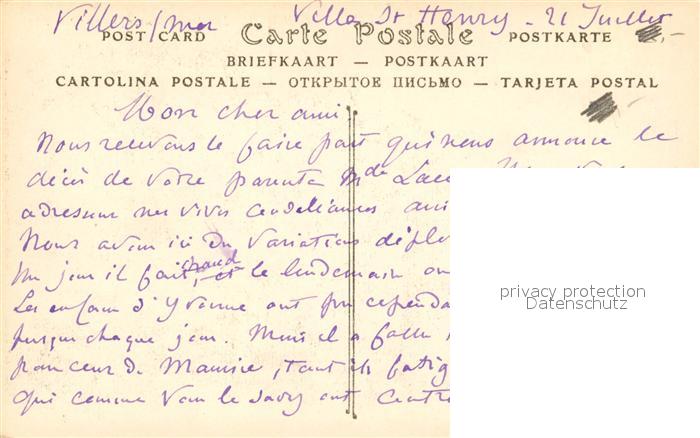 Villers/mer Villa St Henry - 21 Juillet
POST CARD Carte Postale POSTKARTE
BRIEFKAART — POSTKAART
CARTOLINA POSTALE — ОТКРЫТОЕ ПИСЬМО — TARJETA POSTAL
Mon cher ami
Nous recevons le faire part qui nous annonce le
décès de votre parente Mde
adressons nos vives condoléances
Nous avons ici du variations
Un jour il fait chaud, et le lendemain
Les enfants d'Yvonne ont pu
presque chaque jour. Mais il a fallu
de Maurice, tant ils
qui comme vous le savez ont
privacy protection
Datenschutz